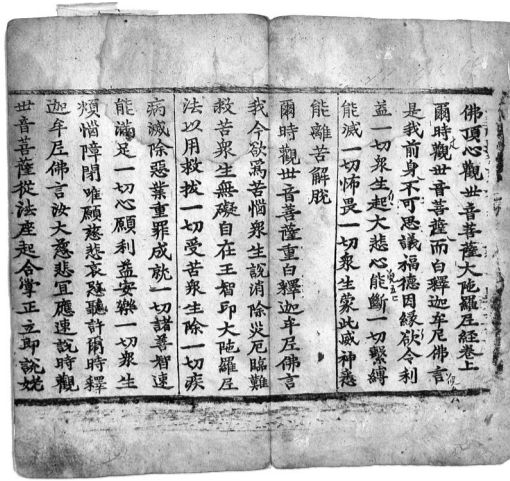 佛頂心觀世音菩薩大陁羅尼經卷上
爾時觀世音菩薩而白釋迦牟尼佛言
是我前身不可思議福德因緣欲令利
益一切衆生起大悲心能斷一切繫縛
能滅一切怖畏一切衆生蒙此威神悉
能離苦解脫
爾時觀世音菩薩重白釋迦牟尼佛言
我今欲爲苦惱衆生說消除災厄臨難
救苦衆生無礙自在王智印大陁羅尼
法以用救拔一切受苦衆生除一切疾
病滅除惡業重罪成就一切諸善智速
能滿足一切心願利益安樂一切衆生
煩惱障閉唯願慈悲哀愍聽許爾時釋
迦牟尼佛言汝大慈悲宜應速說時觀
世音菩薩從法座起合掌正立即說姥